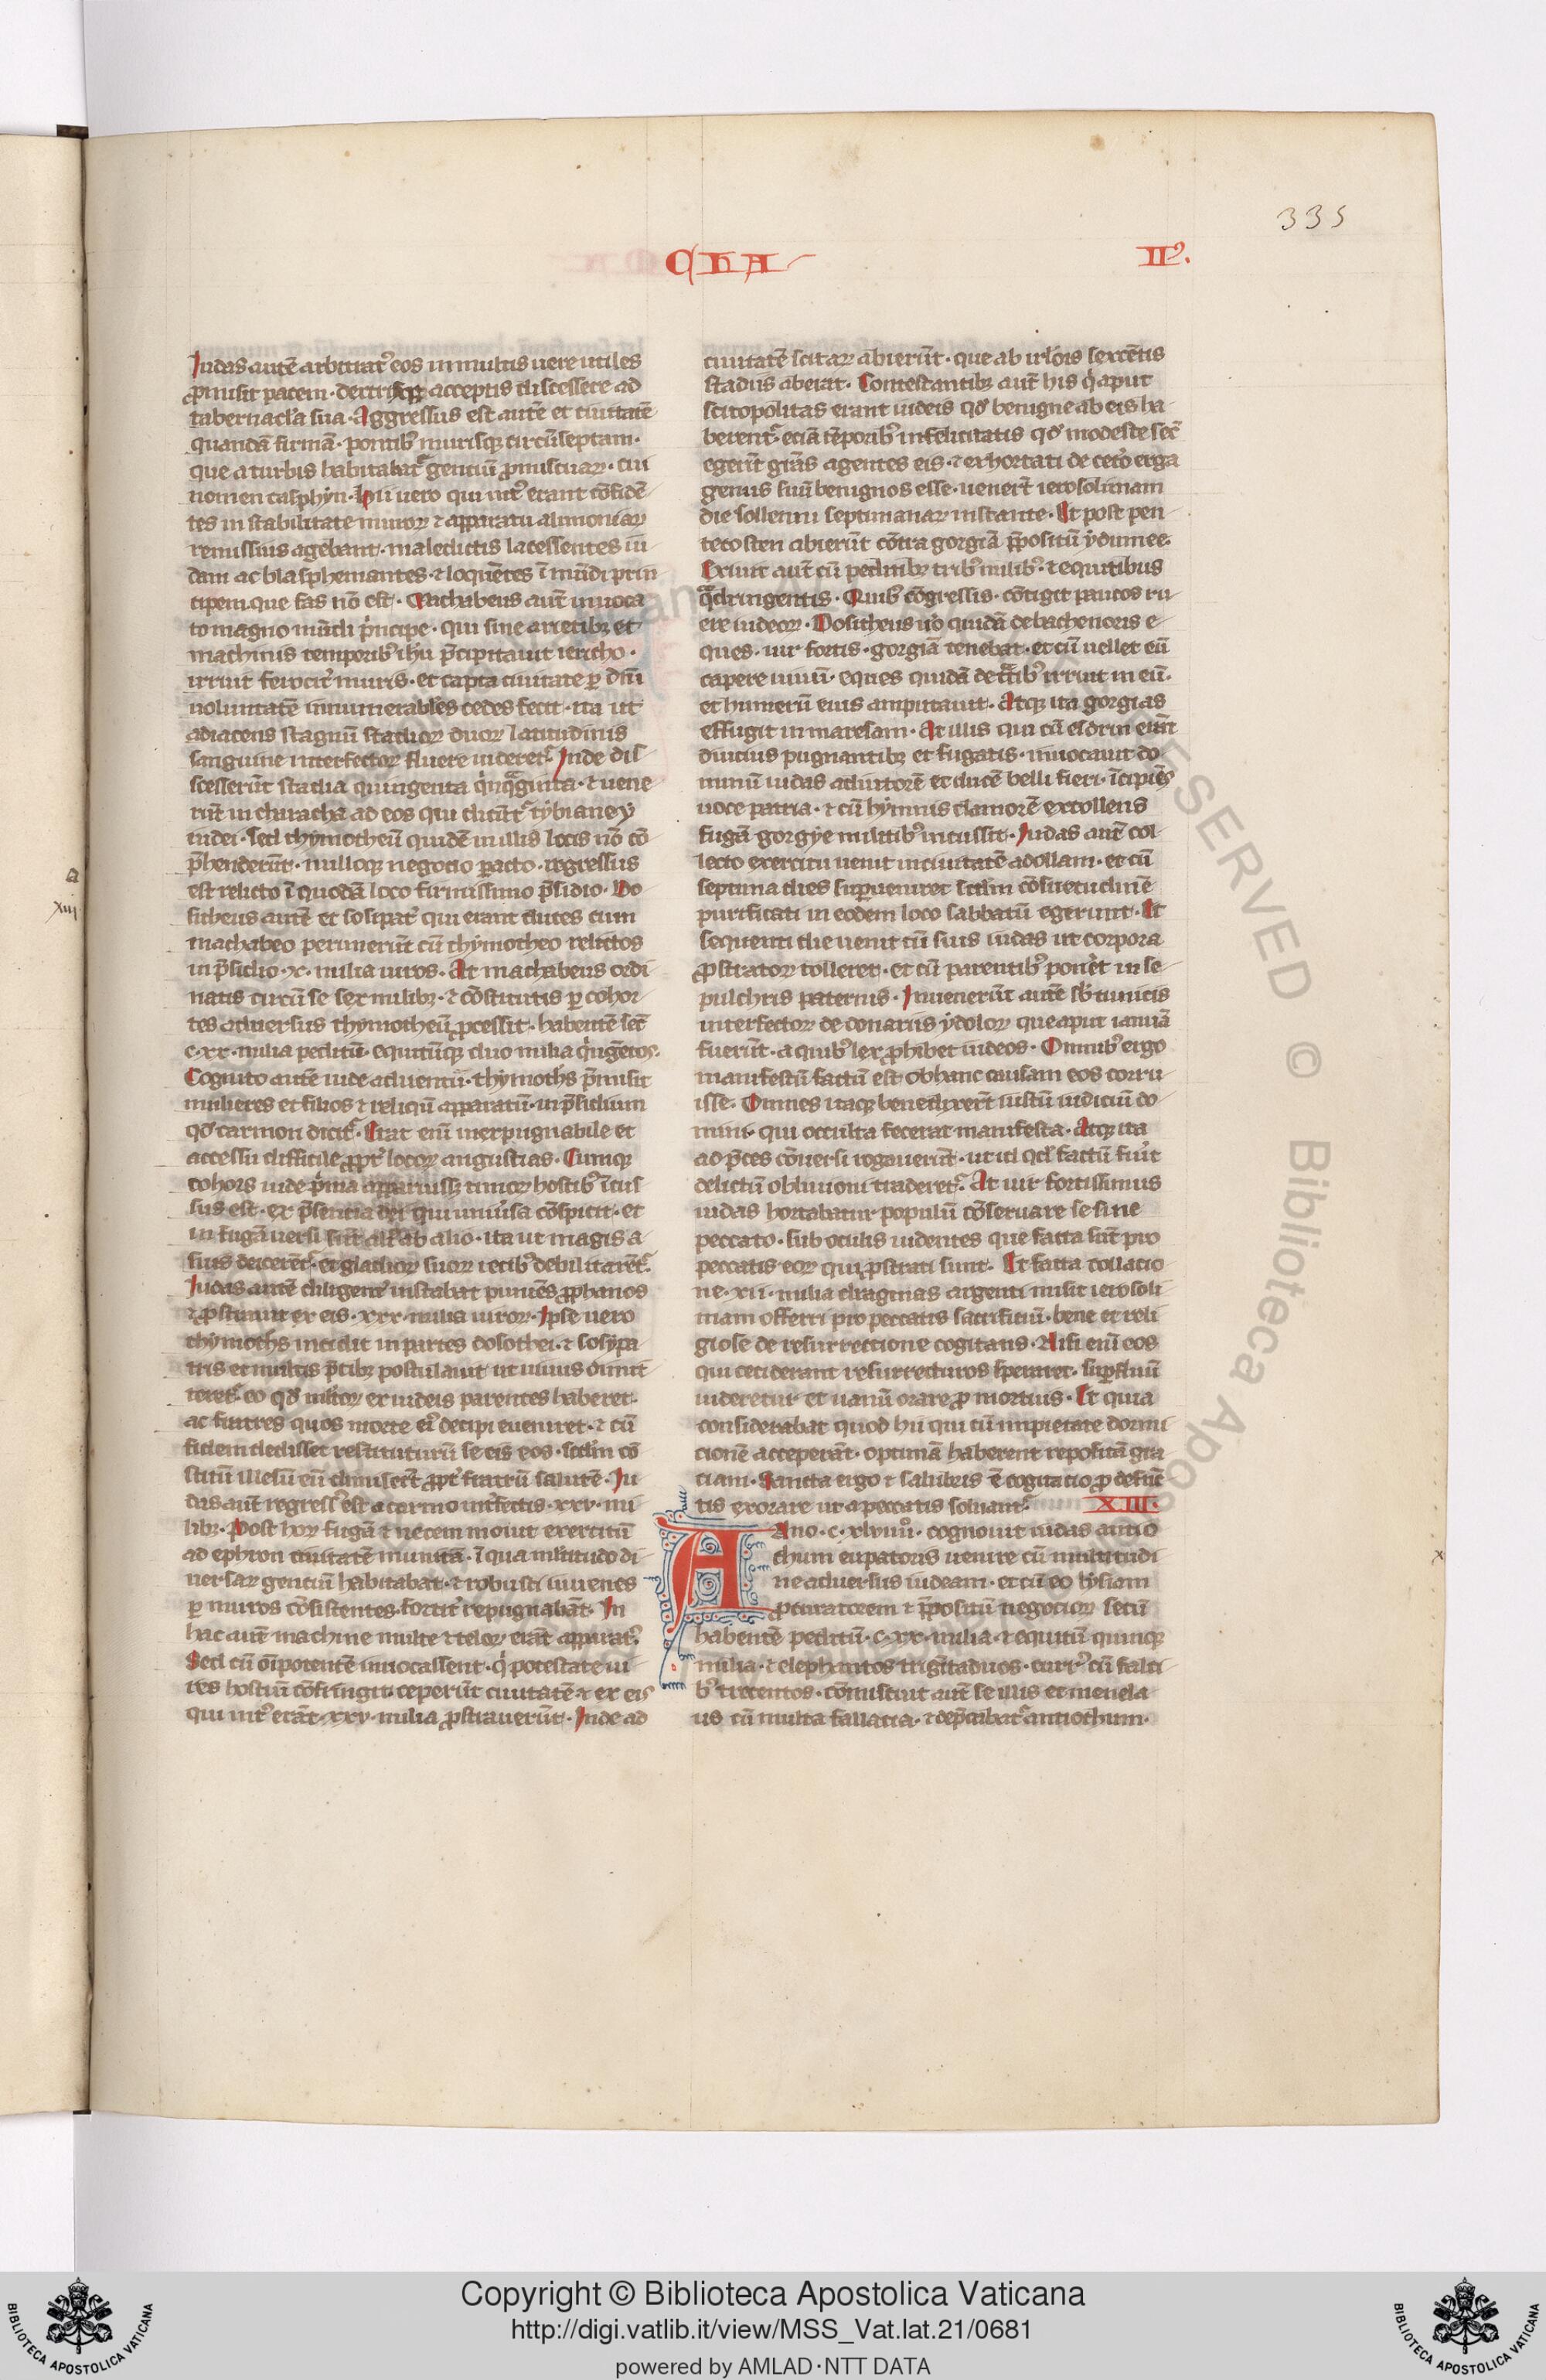 335
CHA
IIº.
Iudas autē arbitrat᷒ eos in multis uere utiles
ꝓmisit pacem · dextrisqꝫ acceptis discessere ad
tabernac̄la sua · Aggressus est autē et ciuitatē
quandā firmā · pontib᷒ murisqꝫ circūseptam ·
que a turbis habitabat᷒ gentiū ꝓmiscuaꝝ · cui
nomen casphyn · hii uero qui int᷒ erant cōfidē
tes in stabilitate muroꝝ ⁊ apparatu alimoniaꝝ
remissius agebant · maledictis lacessentes iu
dam ac blasphemantes · ⁊ loquētes ī mūdi prin
cipem que fas nō est · Machabeus aut̄ inuoca
to magno mūdi p̍ncipe · qui sine arietibꝫ et
machinis temporib᷒ ihū p̄cipitauit iericho ·
irruit ferocit᷒ muris · et capta ciuitate ꝑ dn̄i
uoluntatē innumerabiles cedes fecit · ita ut
adiacens stagnū stadioꝝ duoꝝ latitudinis
sanguine interfectoꝝ fluere uideret᷒ Inde dis
cesserūt stadia quingenta q̍nq̄ginta · ⁊ uene
rūt in characha ad eos qui dicūt᷒ tybianey
iudei · Sed thymotheū quidē in illis locis nō cō
p̄henderūt · nulloqꝫ negocio ꝑacto · regressus
est relicto ī quodā loco firmissimo p̄sidio · Do
sitheus autē et sosipat᷒ qui erant duces cum
machabeo peremerūt cū thymotheo relictos
in p̄sidio · x · milia uiros · At machabeus ordi
natis circū se sex milibꝫ · ⁊ cōstitutis ꝑ cohor
tes aduersus thymotheū ꝓcessit · habentē sec̄
c · xx · milia peditū · equitūqꝫ duo milia q̍ngētos ·
Cognito autē iude aduentū · thymoths p̄misit
mulieres et filios ⁊ reliquū apparatū · in p̄sidium
qd̄ carnion dicit᷒ · Erat enī inexpugnabile et
accessu difficile ꝓpt᷒ locoꝝ angustias · Cumqꝫ
cohors iude p̍ma apparuissꝫ timor hostib᷒ īcus
sus est · ex p̄sentia dei qui uniu̍sa cōspicit · et
in fugā uersi sūt alt᷒ ab alio · ita ut magis a
suis deicerēt᷒ · et gladioꝝ suoꝝ ictib᷒ debilitarēt᷒
Iudas autē diligent᷒ instabat puniēs ꝓphanos
⁊ ꝓstrauit ex eis · xxx · milia uiroꝝ · Ipse uero
thymoths incidit in partes dosothei · ⁊ sosypa
tris et multis p̄cibꝫ postulauit ut uiuus dimit
teret᷒ · eo qd̄ m̄ltoꝝ ex iudeis parentes haberet ·
ac fratres quos morte ei᷒ decipi eueniret · ⁊ cū
fidem dedisset restituturū se eis eos · scd̄m cō
stitū illesū eū dimiserēt ꝓpt᷒ fratrū salutē · Iu
das aut̄ regress᷒ est a carnio int̍fectis · xxv · mi
libꝫ · Post hoꝝ fugā ⁊ necem mouit exercitū
ad ephron ciuitatē munitā · ī qua m̄ltitudo di
uersaꝝ gentiū habitabat · ⁊ robusti iuuenes
ꝑ muros cōsistentes · fortit᷒ repugnabāt · In
hac autē machine multe ⁊ teloꝝ erāt apparat᷒ ·
Sed cū oīpotentē inuocassent · q̍ potestate ui
res hostiū cōfringit · ceperūt ciuitatē · ⁊ ex eis
qui int᷒ erāt · xxv · milia ꝓstrauerūt · Inde ad
ciuitatē scitaꝝ abierūt · que ab irl̄ois sexcētis
stadiis aberat · Contestantibꝫ aut̄ his q̍ aput
scitopolitas erant iudeis qd̄ benigne ab eis ha
berent᷒ · eciā tēporib᷒ infelicitatis qd̄ modeste sec̄
egerīt grās agentes eis · ⁊ exhortati de cet̍o erga
genus suū benignos esse · uener̄t ierosolimam
die sollenni septimanaꝝ instante · Et post pen
tecosten abierūt cōtra gorgiā p̄positū ydumee ·
Exiuit aut̄ cū peditibꝫ trib᷒ milib᷒ · ⁊ equitibus
q̄dringentis · Quib᷒ cōgressis · cōtigit paucos ru
ere iudeoꝝ · Dositheus u̍o quidā de bachenoris e
ques · uir fortis · gorgiā tenebat · et cū uellet eū
capere uiuū · eques quidā de t̄cib᷒ irruit in eū ·
et humerū eius amputauit · Atqꝫ ita gorgias
effugit in maresam · At illis qui cū esdrin erāt
diucius pugnantibꝫ et fugatis · inuocauit do
minū iudas adiutorē et ducē belli fieri · īcipiēs
uoce patria · ⁊ cū hymnis clamorē extollens
fugā gorgye militib᷒ incussit · Iudas autē col
lecto exercitu uenit in ciuitatē adollam · et cū
septima dies suꝑueniret scd̄m cōsuetudinē
purificati in eodem loco sabbatū egerunt · Et
sequenti die uenit cū suis iudas ut corpora
ꝓstratoꝝ tolleret · et cū parentib᷒ poner̄t in se
pulchris paternis · Inuenerūt autē sb̄ tunicis
interfectoꝝ de donariis ydoloꝝ que aput iamiā
fuerūt · a quib᷒ lex ꝓhibet iudeos · Omnib᷒ ergo
manifestū factū est ob hanc causam eos corru
isse · Omnes itaqꝫ benedixer̄t iustū iudiciū do
mini · qui occulta fecerat manifesta · Atqꝫ ita
ad p̄ces cōuersi rogauerūt · ut id qd̄ factū fu̍at
delictū obliuioni traderet᷒ · At uir fortissimus
iudas hortabatur populū cōseruare se sine
peccato · sub oculis uidentes que facta sūt pro
peccatis eoꝝ qui ꝓstrati sunt · Et facta collacio
ne · xii · milia dragmas argenti misit ierosoli
mam offerri pro peccatis sacrificiū · bene et reli
giose de resurrectione cogitans · Nisi enī eos
qui ceciderant resurrecturos speraret · suꝑfluū
uideretur et uanū orare ꝓ mortuis · Et quia
considerabat quod hii qui cū impietate dormi
cionē acceperāt · optimā haberent repositā gra
ciam · Sancta ergo ⁊ salubris ē cogitacio ꝓ defūc
tis exorare ut a peccatis soluant᷒ XIII ·
Ano · c · xlviiii · cognouit iudas antio
chum eupatoris uenire cū multitudi
ne aduersus iudeam · et cū eo lysiam
ꝓcuratorem ⁊ p̄positū negocioꝝ secū
habentē peditū · c · xx · milia · ⁊ equitū quinqꝫ
milia · ⁊ elephantos trigītaduos · curr᷒ cū falci
b᷒ trecentos · cōmiscuit autē se illis et menela
us cū multa fallacia · ⁊ dep̄cabat᷒ antiochum ·
a
xiij
x
Copyright © Biblioteca Apostolica Vaticana
http://digi.vatlib.it/view/MSS_Vat.lat.21/0681
powered by AMLAD·NTT DATA
BIBLIOTECA APOSTOLICA VATICANA
BIBLIOTECA APOSTOLICA VATICANA